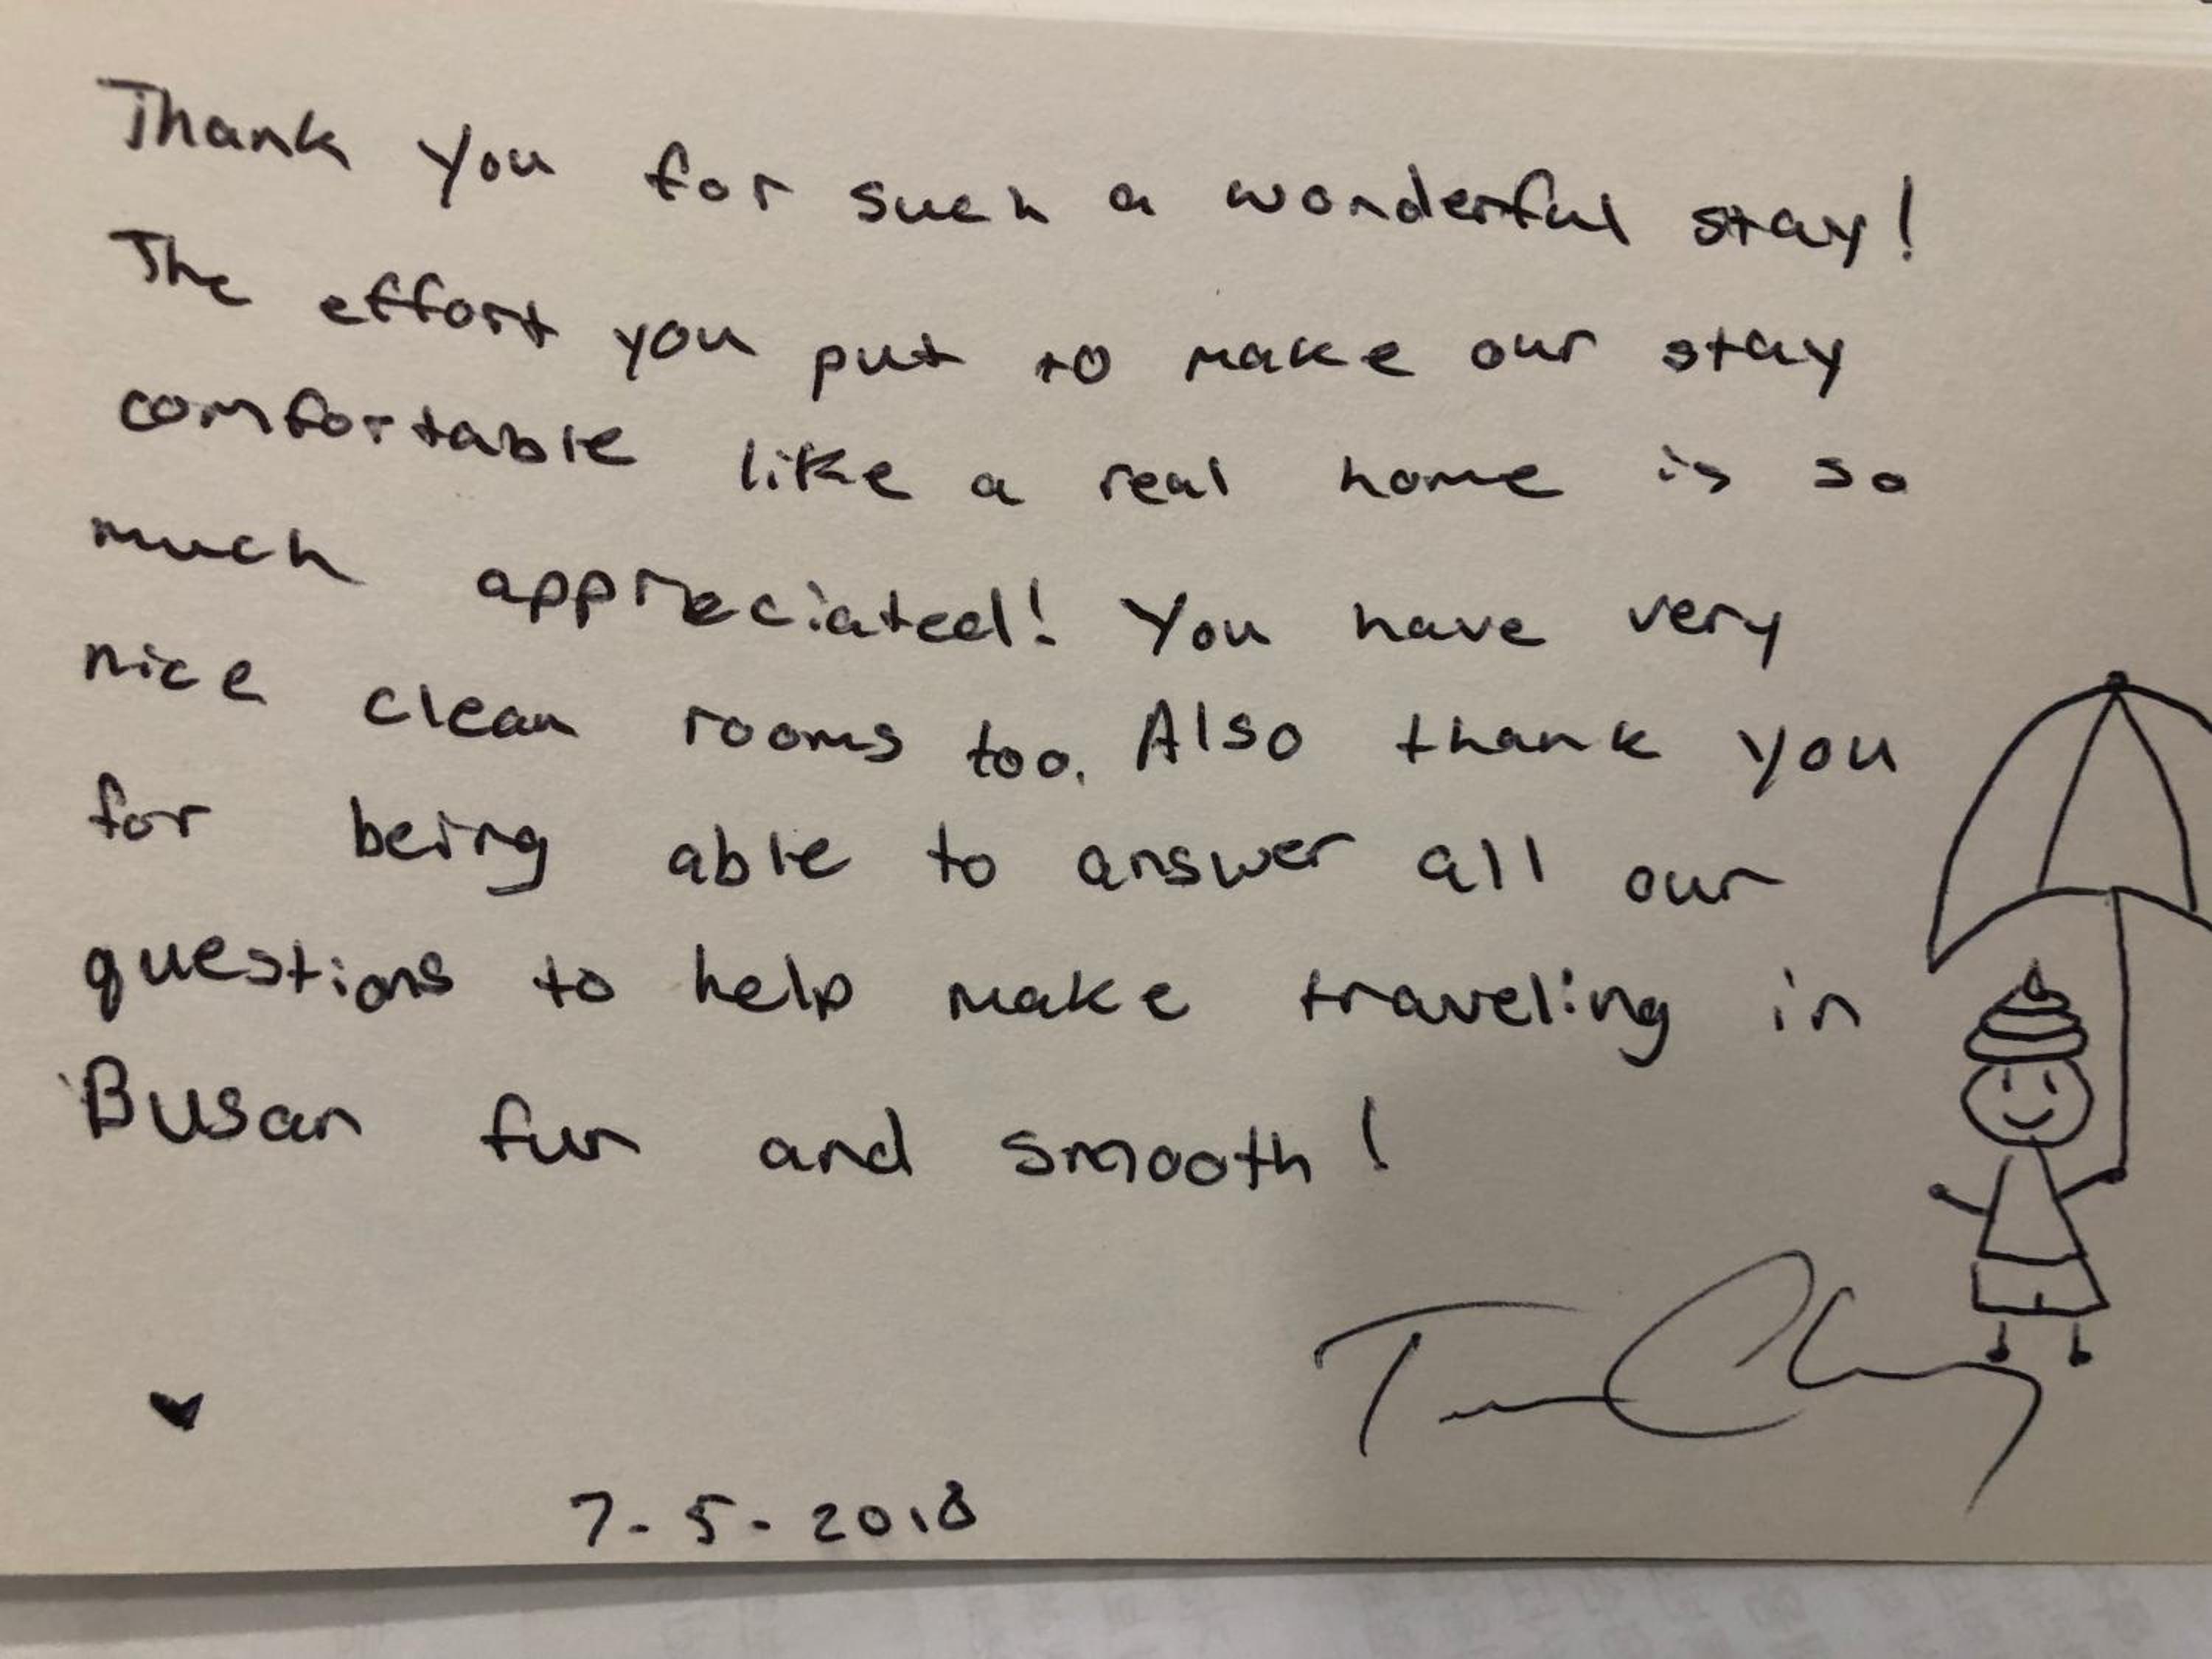 Thank you for such a wonderful stay!
The effort you put to make our stay
comfortable like a real home is so
much appreciated! You have very
nice clean rooms too. Also thank you
for being able to answer all our
questions to help make traveling in
Busan fun and smooth!
7-5-2018